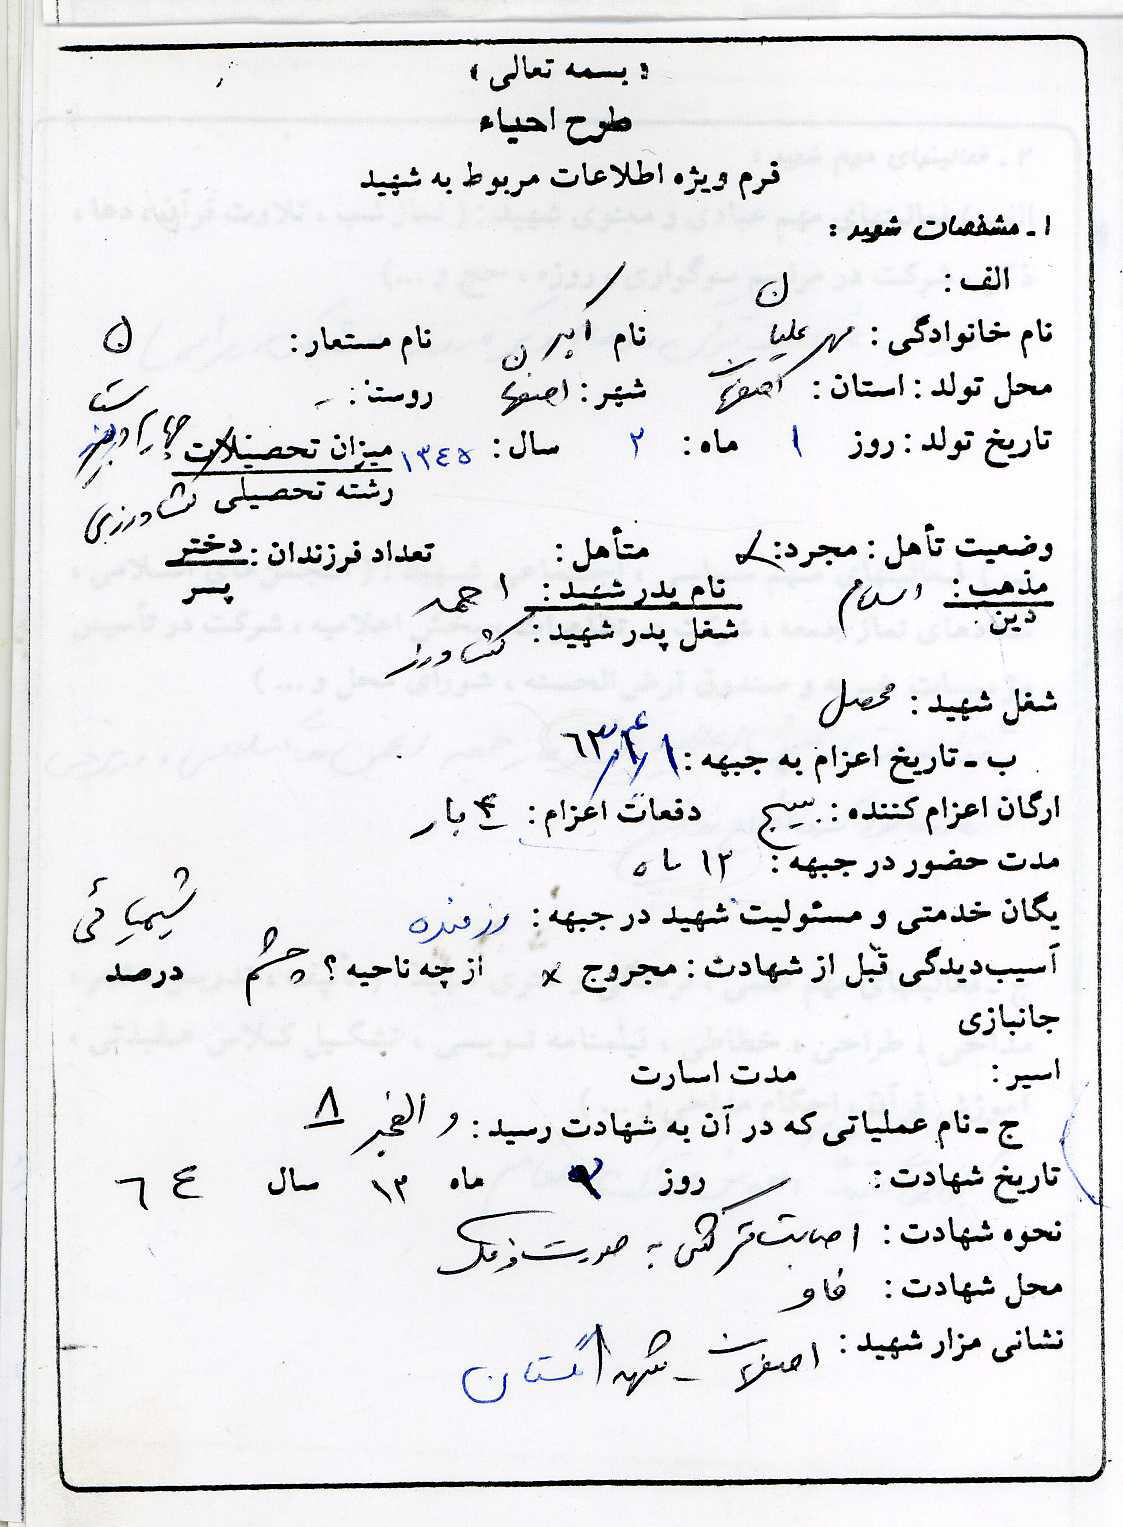 « بسمه تعالی »
طرح احیاء
فرم ویژه اطلاعات مربوط به شهید
۱ـ مشخصات شهید :
الف :
نام خانوادگی : مهرعلیان نام اکبر نام مستعار :
محل تولد : استان : اصفهان شهر : اصفهان روستا : -
تاریخ تولد : روز ۱ ماه : ۲ سال : ۱۳٤۵ میزان تحصیلات : چهارم دبیرستان
رشته تحصیلی کشاورزی
وضعیت تأهل : مجرد : متأهل : تعداد فرزندان : دختر
پسر
مذهب : اسلام نام پدر شهید : احمد
دین : شغل پدر شهید : کشاورز
شغل شهید : محصل
ب ـ تاریخ اعزام به جبهه : ٦۳
ارگان اعزام کننده : بسیج دفعات اعزام : ۴ بار
مدت حضور در جبهه : ۱۲ ماه
یگان خدمتی و مسئولیت شهید در جبهه : رزمنده
آسیب‌دیدگی قبل از شهادت : مجروح × از چه ناحیه ؟ چشم شیمیائی درصد
جانبازی
اسیر : مدت اسارت
ج ـ نام عملیاتی که در آن به شهادت رسید : والفجر ۸
تاریخ شهادت : روز ماه ۱۲ سال ٦٤
نحوه شهادت : اصابت ترکش به صورت و فک
محل شهادت : فاو
نشانی مزار شهید : اصفهان - گلستان شهدا